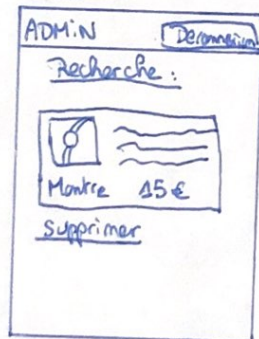 ADMIN Déconnexion
Recherche :
Montre 15 €
Supprimer